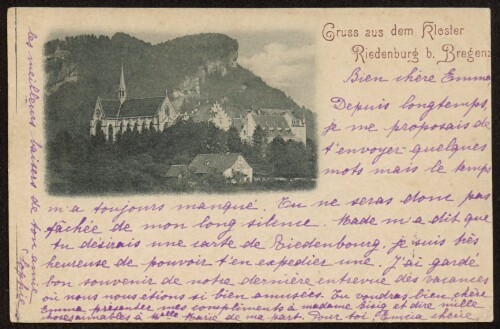 Gruss aus dem Kloster
Riedenburg b. Bregenz
Bien chère Emma
Depuis longtemps,
je me proposais de
t'envoyer quelques
mots mais le temps
m'a toujours manqué. Tu ne seras donc pas
fâchée de mon long silence. Made m'a dit que
tu désirais une carte de Riedenbourg, je suis très
heureuse de pouvoir t'en expédier une. J'ai gardé
bon souvenir de notre dernière entrevue des vacances
où nous nous étions si bien amusées. Tu voudras bien, chère
Emma présenter mes compliments à madame et dire mille
choses aimables à Melle Marie de ma part. Pour toi, chérie,
les meilleurs baisers de ton amie
Sophie